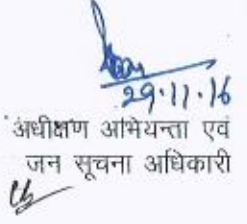 29.11.16
अधीक्षण अभियन्ता एवं
जन सूचना अधिकारी